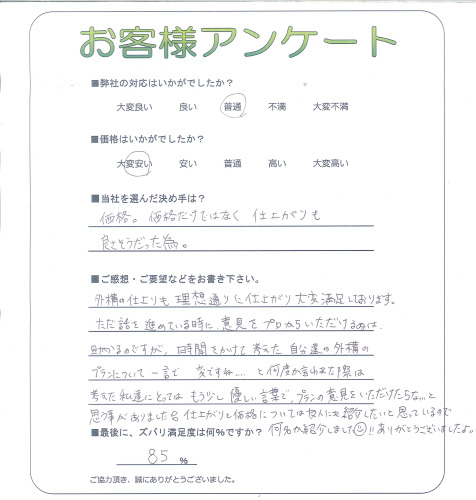 お客様アンケート
■弊社の対応はいかがでしたか？
大変良い 良い 普通 不満 大変不満
■価格はいかがでしたか？
大変安い 安い 普通 高い 大変高い
■当社を選んだ決め手は？
価格。価格だけではなく 仕上がりも
良さそうだった為。
■ご感想・ご要望などをお書き下さい。
外構の仕上りも 理想通りに仕上がり 大変満足しております。
ただ話を進めている時に、意見をプロからいただけるのは、
助かるのですが、時間をかけて考えた 自分達の外構の
プランについて 一言で 変ですね…. と何度か言われた際は
考えた私達にとっては もう少し 優しい言葉で、プランの意見をいただけたらな…と
思う事がありました 仕上がりと価格については友人にも紹介したいと思っているので
■最後に、ズバリ満足度は何％ですか？ 何名か紹介しました!!ありがとうございましたよ。
85 ％
ご協力頂き、誠にありがとうございました。